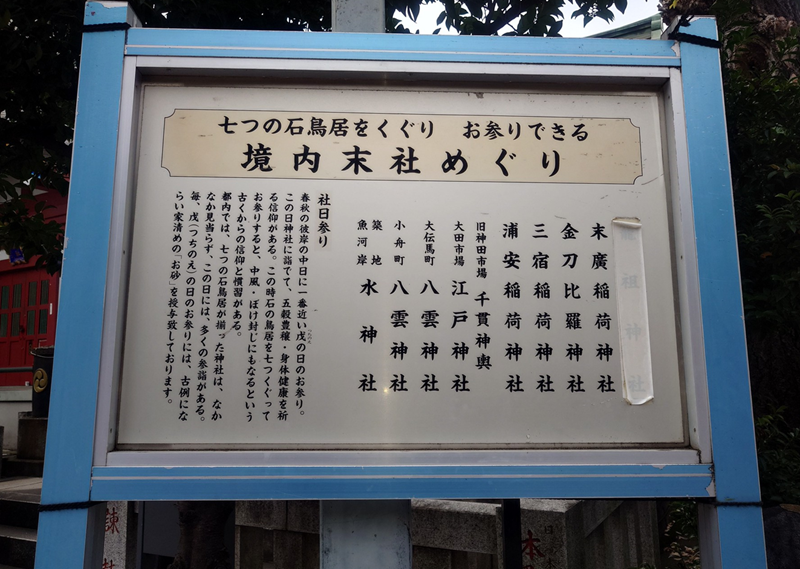 七つの石鳥居をくぐり　お参りできる
境内末社めぐり
祖神社
末廣稲荷神社
金刀比羅神社
三宿稲荷神社
浦安稲荷神社
旧神田市場 千貫神輿
大田市場 江戸神社
大伝馬町 八雲神社
小舟町 八雲神社
築地
魚河岸 水神社
社日参り
春秋の彼岸の中日に一番近い戊の日のお参り。
この日神社に詣でて、五穀豊穣・身体健康を祈
る信仰がある。この時石の鳥居を七つくぐって
お参りすると、中風・ぼけ封じにもなるという
古くからの信仰と慣習がある。
都内では、七つの石鳥居が揃った神社は、なか
なか見当らず、この日には、多くの参詣がある。
毎、戊（つちのえ）の日のお参りには、古例にな
らい家清めの「お砂」を授与致しております。